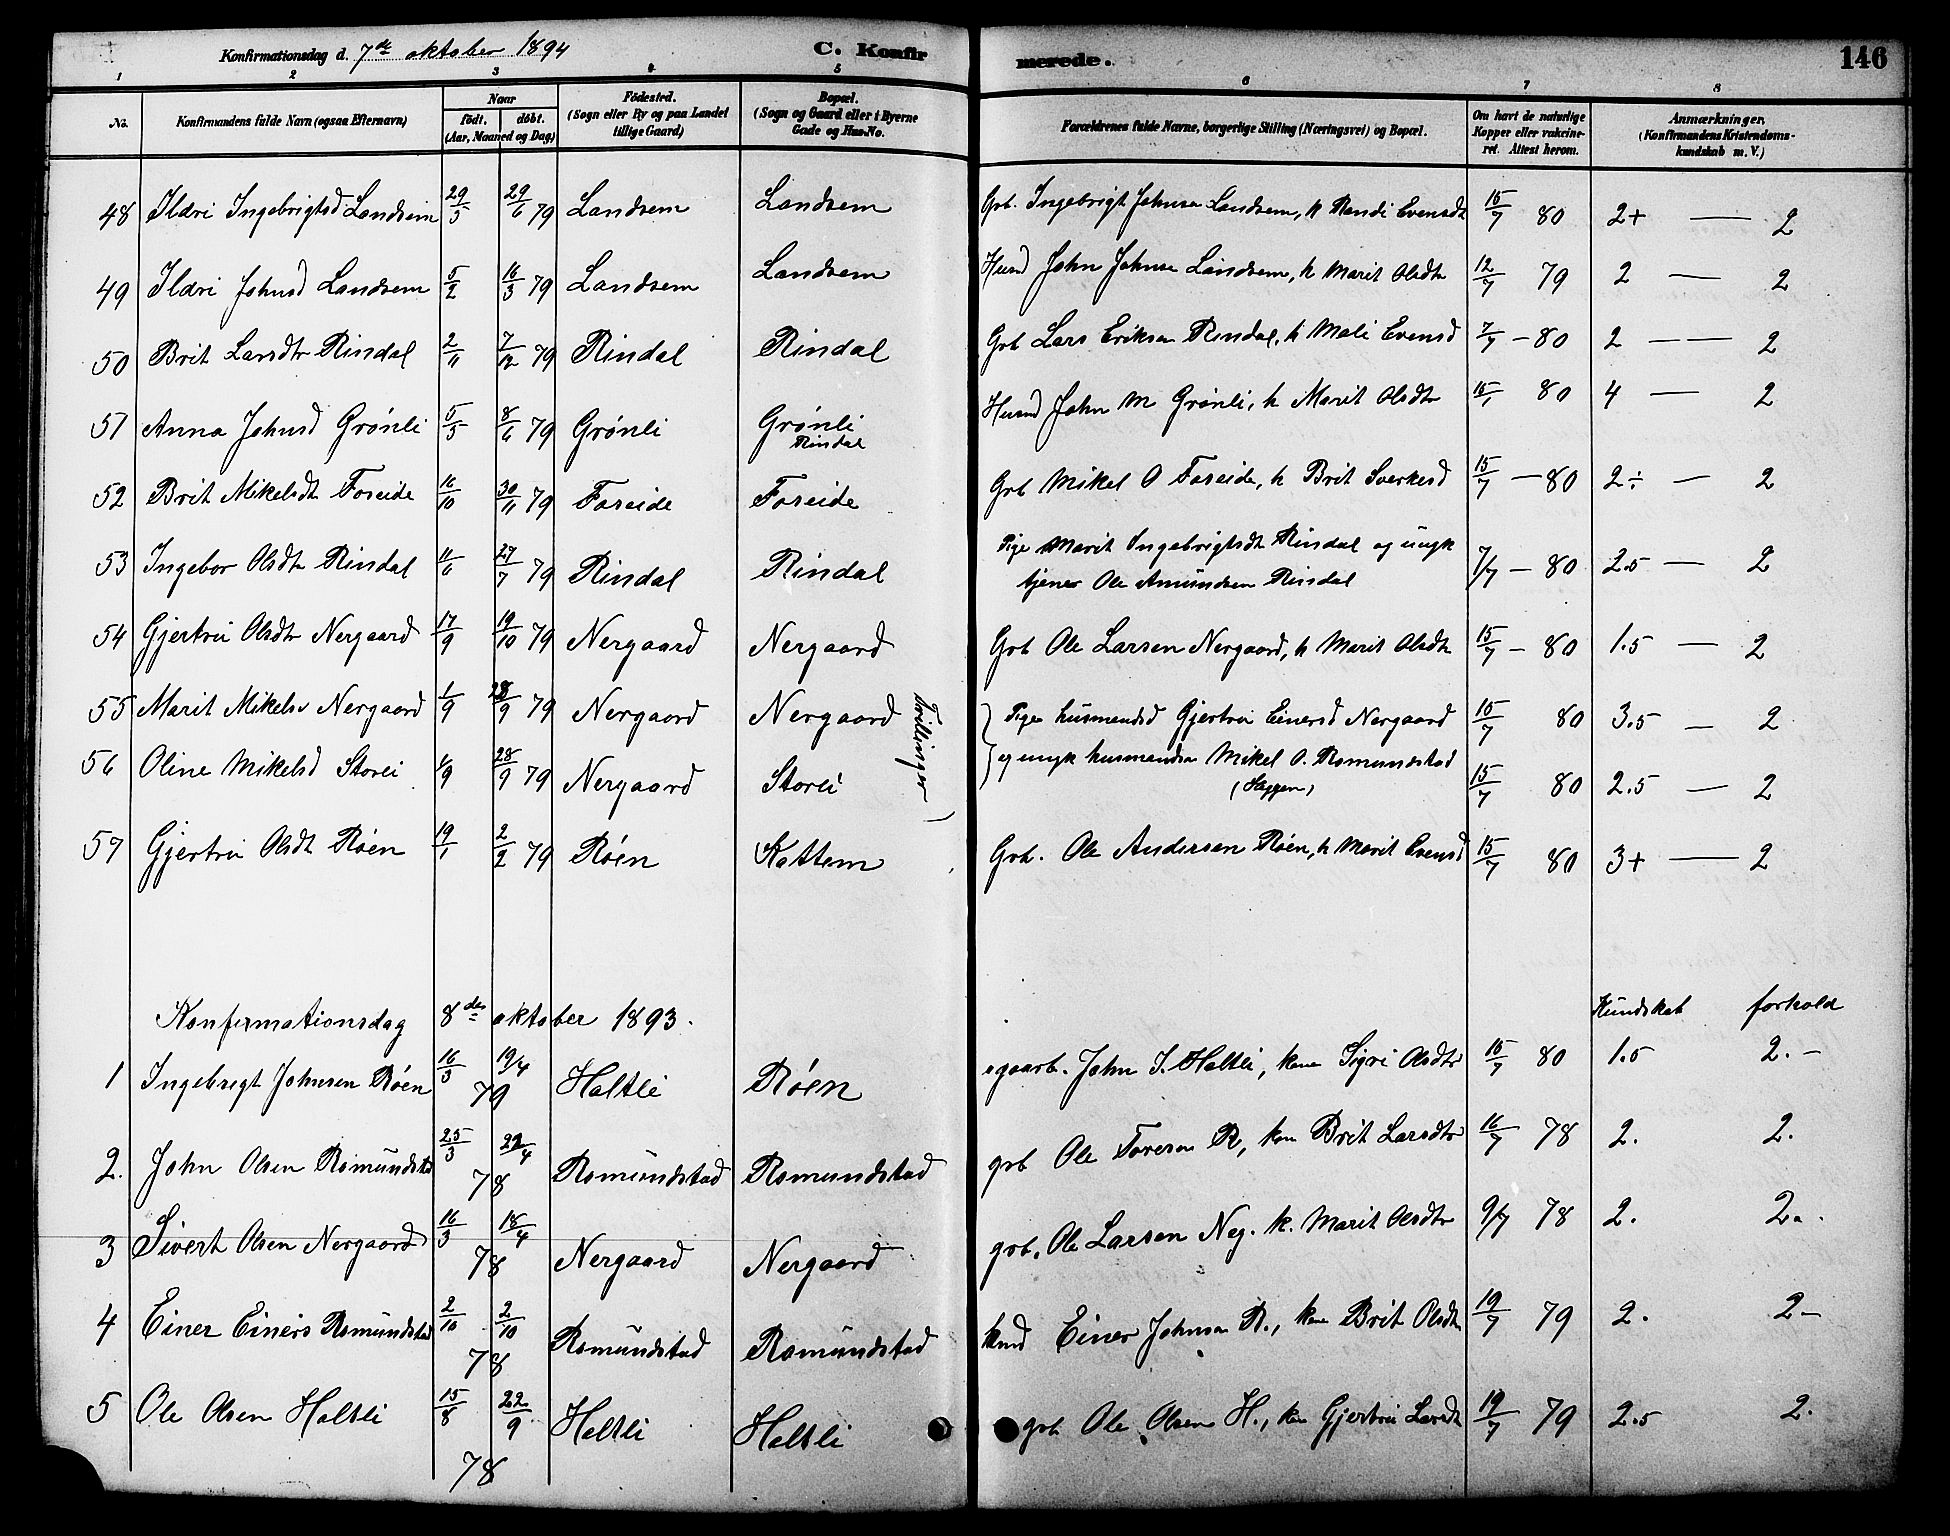 Konfirmationsdag d. 7de oktober 1894 C. Konfirmerede. 146
1 2 3 4 5 6 7 8
No. Konfirmandens fulde Navn (ogsaa Efternavn) Naar födt. döbt. (Aar, Maaned og Dag) Födested. (Sogn eller By og paa Landet tillige Gaard) Bopæl. (Sogn og Gaard eller i Byerne Gade og Hus-No. Forældrenes fulde Navne, borgerlige Stilling (Næringsvei) og Bopæl. Om havt de naturlige Kopper eller vakcineret. Attest herom. Anmærkninger. (Konfirmandens Kristendomskundskab m. V.)
48 Ildri Ingebrigtsd Landsem 29/5 29/6 79 Landsem Landsem Grb. Ingebrigt Johnsen Landsem, h Randi Evensdt 15/7 80 2+ — 2
49 Ildri Johnsd Landsem 5/2 16/3 79 Landsem Landsem Husmd John Johnsen Landsem, h Marit Olsdtr 12/7 79 2 — 2
50 Brit Larsdtr Rindal 2/11 7/12 79 Rindal Rindal Grb Lars Eriksen Rindal, h Mali Evensd 7/7 - 80 2 — — 2
51 Anna Johnsd Grønli 5/5 8/6 79 Grønli Grønli Rindal Husmd John M Grønli, h Marit Olsdtr 80 4 — 2
52 Brit Mikelsdt Foseide 16/10 30/11 79 Foseide Foseide Grb Mikel O Foseide, h Brit Sverkesd 15/7 - 80 2÷ — 2
53 Ingebor Olsdtr Rindal 11/6 27/7 79 Rindal Rindal Pige Marit Ingebrigtsdt Rindal og ungk
tjener Ole Amundsen Rindal 7/7 - 80 2.5 — 2
54 Gjertru Olsdtr Nergaard 17/9 19/10 79 Nergaard Nergaard Grb Ole Larsen Nergaard, h Marit Olsdtr 15/7 - 80 1.5 — 2
55 Marit Mikelsd Nergaard 1/9 28/9 79 Nergaard Nergaard Pige husmandsd Gjertru Einersd Nergaard 15/7 80 3.5 — 2
56 Oline Mikelsd Storli 1/9 28/9 79 Nergaard Storli og ungk husmandsn Mikel O. Romundstad
15/7 80 2.5 — 2
Tvillinger
57 Gjertru Olsdt Röen 19/1 2/2 79 Röen Kattem Grb. Ole Andersen Röen, h Marit Evensd 15/7 80 3+ — 2
Konfirmationsdag 8de oktober 1893. Kundskab forhold
1 Ingebrigt Johnsen Röen 16/3 19/4 79 Haltli Röen gaarb. John I. Haltli, kone Sigri Olsdtr 15/7 80 1.5 2.-
2. John Olsen Romundstad 25/3 22/4 78 Romundstad Romundstad grb Ole Toresen R, kone Brit Larsdtr 16/7 78 2. 2.
3 Sivert Olsen Nergaard 16/3 18/4 78 Nergaard Nergaard grb. Ole Larsen Neg. k. Marit Olsdtr 9/7 78 2. 2.
4 Einer Einers Romundstad 2/10 2/10 78 Romundstad Romundstad Einer Johnsen R., kone Brit Olsdt 19/7 79 2. 2-
5 Ole Olsen Haltli 15/8 22/9 78 Haltli Haltli grb Ole Olsen H., kone Gjertru Larsdt 19/7 79 2.5 2.